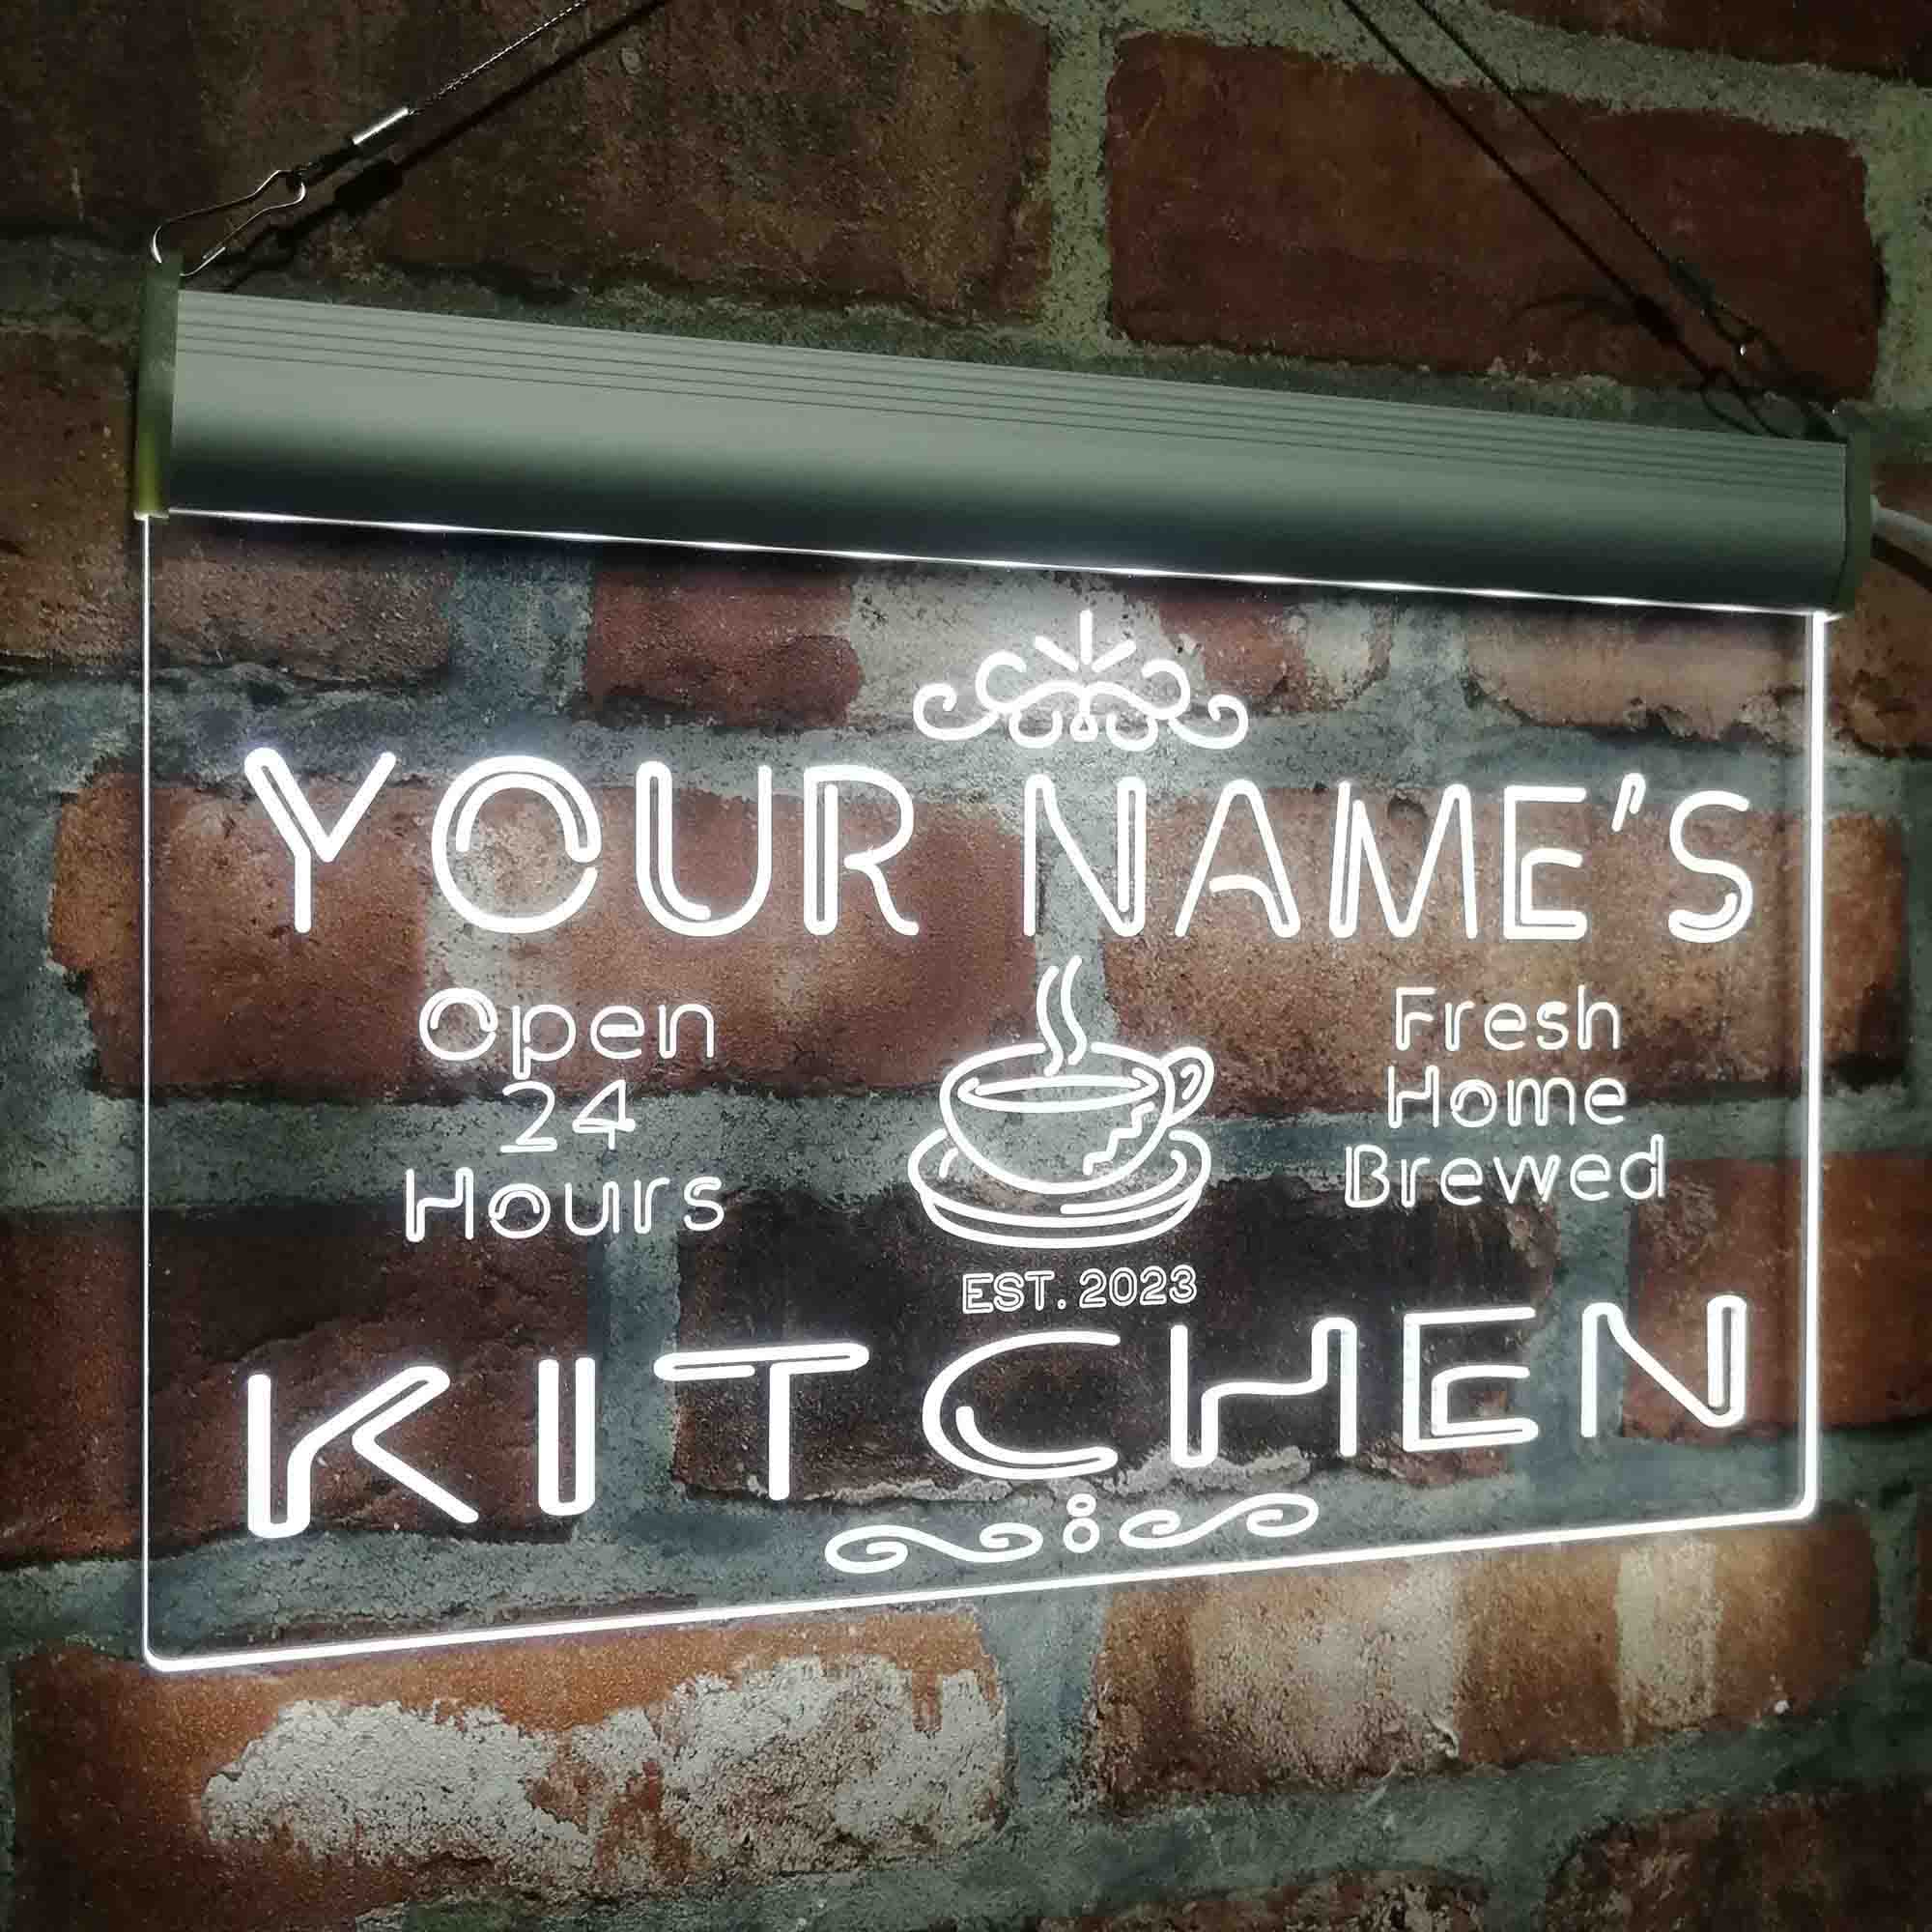 YOUR NAME'S
Open
24
Hours
Fresh
Home
Brewed
EST. 2023
KITCHEN